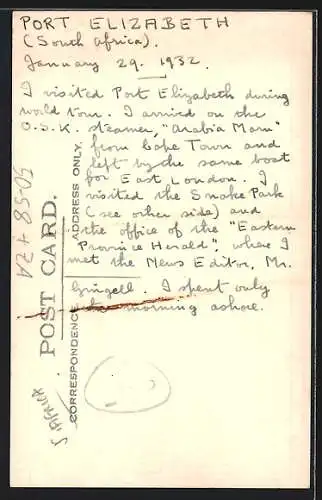 PORT ELIZABETH
(South Africa).
January 29. 1932.
I visited Port Elizabeth during
world tour. I arrived on the
O.S.K. steamer, "Arabia Maru"
from Cape Town and
left by the same boat
for East London. I
visited the Snake Park
(see other side) and
the office of the "Eastern
Province Herald", where I
met the News Editor, Mr.
Gingell. I spent only
morning ashore.
POST CARD.
ADDRESS ONLY.
CORRESPONDENCE